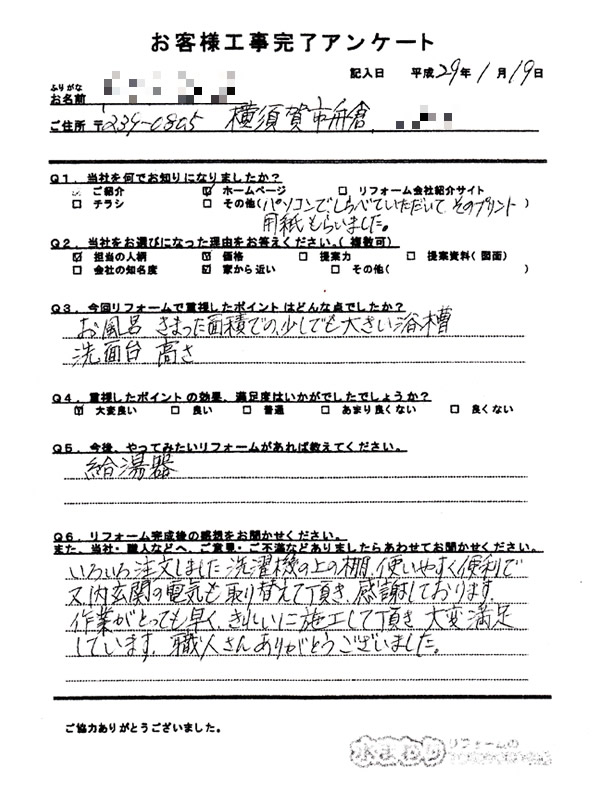 お客様工事完了アンケート
記入日 平成29年1月19日
ふりがな
お名前
ご住所 〒239-0805 横須賀市舟倉
Q1．当社を何でお知りになりましたか？
☑ ご紹介 ☑ ホームページ □ リフォーム会社紹介サイト
□ チラシ □ その他(パソコンでしらべていただいて そのプリント)
用紙もらいました。
Q2．当社をお選びになった理由をお答えください。(複数可)
☑ 担当の人柄 ☑ 価格 □ 提案力 □ 提案資料(図面)
□ 会社の知名度 ☑ 家から近い □ その他( )
Q3．今回リフォームで重視したポイントはどんな点でしたか？
お風呂 きまった面積での、少しでも大きい浴槽
洗面台 高さ
Q4．重視したポイントの効果、満足度はいかがでしたでしょうか？
☑ 大変良い □ 良い □ 普通 □ あまり良くない □ 良くない
Q5．今後、やってみたいリフォームがあれば教えてください。
給湯器
Q6．リフォーム完成後の感想をお聞かせください。
また、当社・職人などへ、ご意見・ご不満などありましたらあわせてお聞かせください。
いろいろ注文しました 洗濯機の上の棚、使いやすく便利で
又内玄関の電気も取り替えて頂き、感謝しております。
作業がとっても早く、きれいに施工して頂き 大変満足
しています。職人さんありがとうございました。
ご協力ありがとうございました。
リフォームの